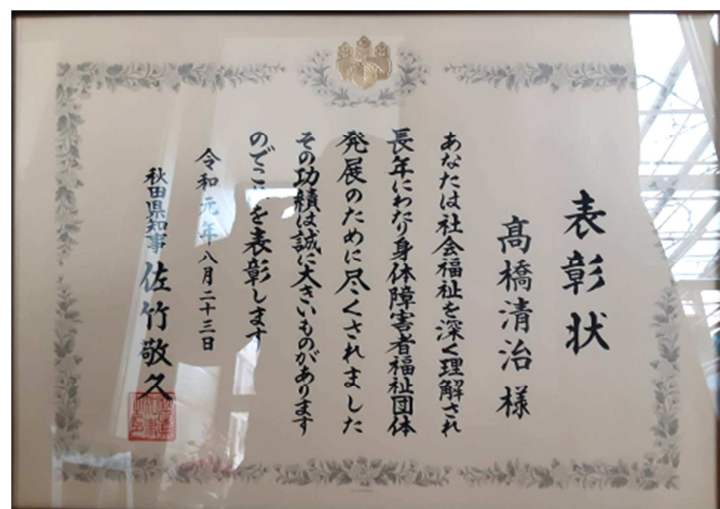 表彰状
髙橋清治 様
あなたは社会福祉を深く理解され
長年にわたり身体障害者福祉団体
発展のために尽くされました
その功績は誠に大きいものがあります
のでこれを表彰します
令和元年八月二十三日
秋田県知事 佐竹敬久